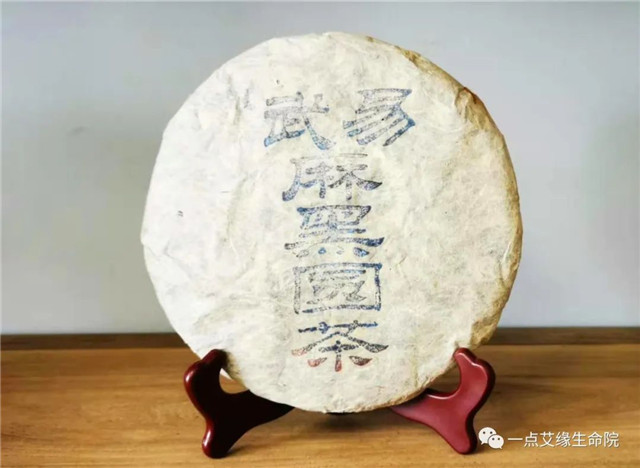 易武
麻
黑
圓
茶
一点艾缘生命院